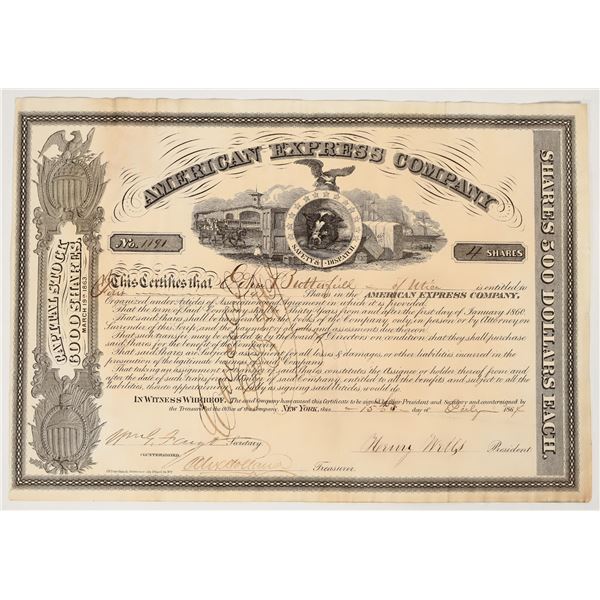 AMERICAN EXPRESS COMPANY
SAFETY & DISPATCH
No. 1191
4 SHARES
CAPITAL STOCK
6000 SHARES.
MARCH 18th 1863
SHARES 500 DOLLARS EACH.
This Certifies that John Butterfield of Utica is entitled to
Four Shares in the AMERICAN EXPRESS COMPANY.
Organized under Articles of Association and Agreement in which it is provided,
That the term of Said Company shall be Thirty Years from and after the first day of January 1860.
That said Shares shall be transferable on the books of the Company only, in person or by Attorney, on
Surrender of this Scrip, and the payment of all calls and assessments due thereon.
That such transfer may be avoided by the board of Directors on condition that they shall purchase
said Shares for the benefit of the Company.
That said Shares are Subject to assessment for all losses & damages, or other liabilities incurred in the
prosecution of the legitimate business of said Company
That taking this Scrip or any transfer of said Shares constitutes the Assignee or holder thereof from and
after the date of such transfer a member of said Company entitled to all the benefits and subject to all the
liabilities, thereto appertaining as fully as signing said articles would do
IN WITNESS WHEREOF, The said Company has caused this Certificate to be signed by their President and Secretary and countersigned by
the Treasurer at the Office of the Company NEW YORK, this 15th day of July 1864
Secretary
Henry Wells President
COUNTERSIGNED,
Alex Holland
Treasurer